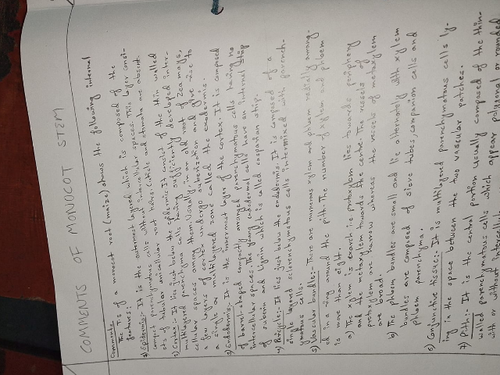 COMMENTS OF MONOCOT STEM
Comments
The T.S of a monocot root (maize) shows the following internal
features:-
1) Epidermis: It is the outermost layer which is composed of the
parenchymatous cells without intercellular spaces. This layer
of tubular unicellular root hairs. Cuticle and stomata are absent.
2) Cortex: It lies just below the epidermis. It consist of the thin walled
multilayered parenchyma cells having sufficiently developed inter-
cellular spaces among them. Usually in an old root of Zea mays,
few layers of cortex undergo suberization and give rise to
a single or multilayered zone called the exodermis.
3) Endodermis: It is the innermost layer of the cortex. It is composed
of barrel shaped compactly arranged parenchymatous cells having no
intercellular spaces. The young endodermal cells have an internal strip
of suberin and lignin which is called casparian strip.
4) Pericycle: It lies just below the endodermis. It is composed of a
single layered sclerenchymatous cells intermixed with parench-
ymatous cells.
5) Vascular bundles:- There are numerous xylem and phloem radially arrang-
ed in a ring around the pith. The number of xylem and phloem
is more than eight.
a) The exarch ie protoxylem lies towards periphery
and the metaxylem towards the centre. The vessels of
protoxylem are narrow whereas the vessels of metaxylem
are broad.
b) The phloem bundles are small and lie alternately with xylem
bundles. It is composed of sieve tubes, companion cells and
phloem parenchyma.
6) Conjunctive tissues: It is multilayered parenchymatous cells ly-
ing in the space between the two vascular patches.
7) Pith:- It is the central portion usually composed of the thin-
walled parenchymatous cells which appear polygonal or rounded
with or without intercellu